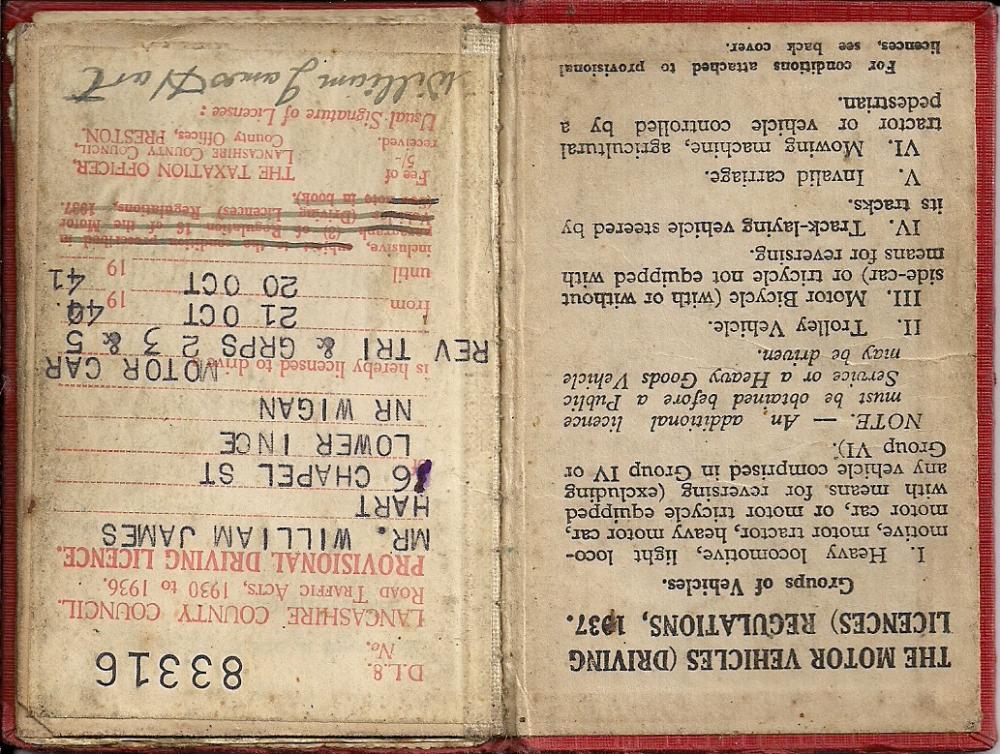 THE MOTOR VEHICLES (DRIVING
LICENCES) REGULATIONS, 1937.
Groups of Vehicles.
I. Heavy locomotive, light loco-
motive, motor tractor, heavy motor car,
motor car, or motor tricycle equipped
with means for reversing (excluding
any vehicle comprised in Group IV or
Group VI).
NOTE. — An additional licence
must be obtained before a Public
Service or a Heavy Goods Vehicle
may be driven.
II. Trolley Vehicle.
III. Motor Bicycle (with or without
side-car) or tricycle not equipped with
means for reversing.
IV. Track-laying vehicle steered by
its tracks.
V. Invalid carriage.
VI. Mowing machine, agricultural
tractor or vehicle controlled by a
pedestrian.
For conditions attached to provisional
licences, see back cover.
D.L.8.
No. 83316
LANCASHIRE COUNTY COUNCIL.
ROAD TRAFFIC ACTS, 1930 to 1936.
PROVISIONAL DRIVING LICENCE.
MR. WILLIAM JAMES
HART
6 CHAPEL ST
LOWER INCE
NR WIGAN
is hereby licensed to drive MOTOR CAR
REV TRI & GRPS 2 3 & 5
from 21 OCT 19 40
until 20 OCT 19 41
inclusive, subject to the condition prescribed in
paragraph (3) of Regulation 16 of the Motor
Vehicles (Driving Licences) Regulations, 1937.
(see note in book).
Fee of
5/-
received.
THE TAXATION OFFICER,
LANCASHIRE COUNTY COUNCIL,
County Offices, PRESTON.
Usual Signature of Licensee :
William James Hart